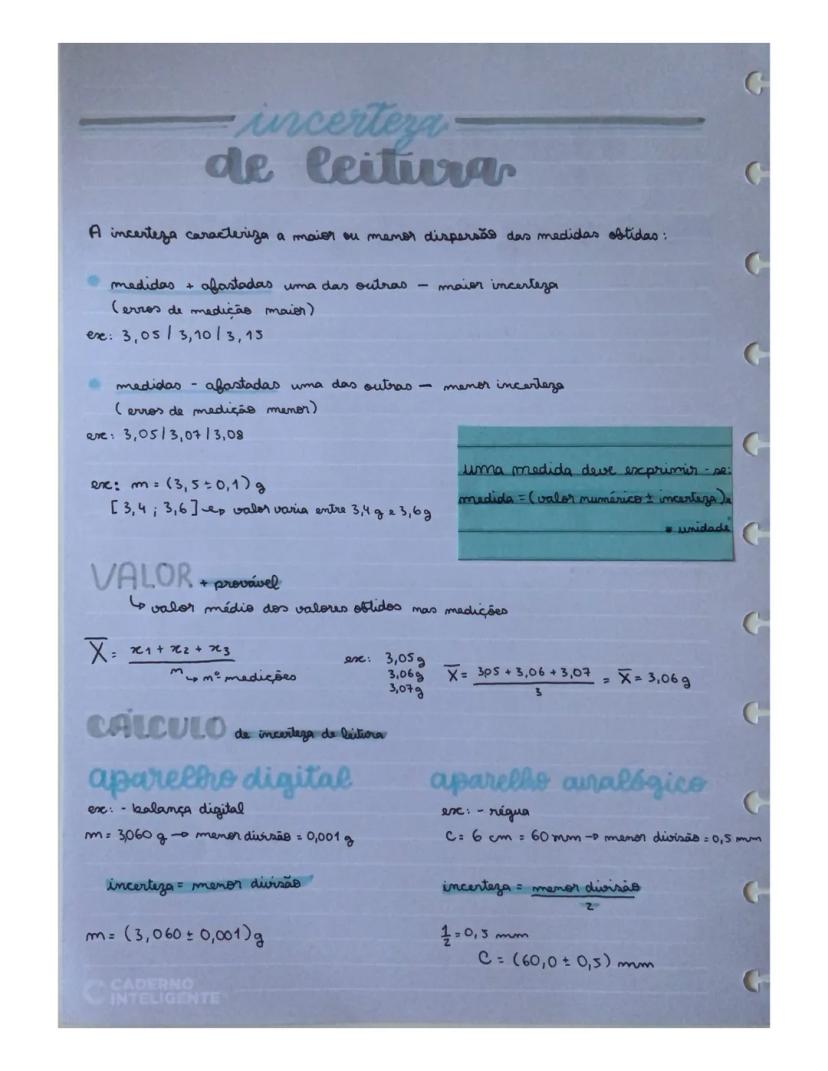 incerteza
de leitura
A incerteza caracteriza a maior ou menor dispersão das medidas obtidas:
medidas + afastadas uma das outras - maior incerteza
(erros de medição maior)
ex: 3,05 / 3,10 / 3,15
medidas - afastadas uma das outras - menor incerteza
(erros de medição menor)
ex: 3,05 / 3,07 / 3,08
uma medida deve exprimir-se:
medida = (valor numérico ± incerteza) x
* unidade
ex: m = (3,5 ± 0,1) g
[3,4 ; 3,6] ↪ valor varia entre 3,4 g e 3,6 g
VALOR + provável
↳ valor médio dos valores obtidos nas medições
X̄ = x1 + x2 + x3 / n ↳ nº medições
ex: 3,05 g
3,06 g
3,07 g
X̄ = 3,05 + 3,06 + 3,07 / 3 = X̄ = 3,06 g
CÁLCULO de incerteza de leitura
aparelho digital
ex: - balança digital
m = 3,060 g → menor divisão = 0,001 g
incerteza = menor divisão
m = (3,060 ± 0,001) g
aparelho analógico
ex: - régua
C = 6 cm = 60 mm → menor divisão = 0,5 mm
incerteza = menor divisão / 2
1/2 = 0,5 mm
C = (60,0 ± 0,5) mm
CADERNO
INTELIGENTE